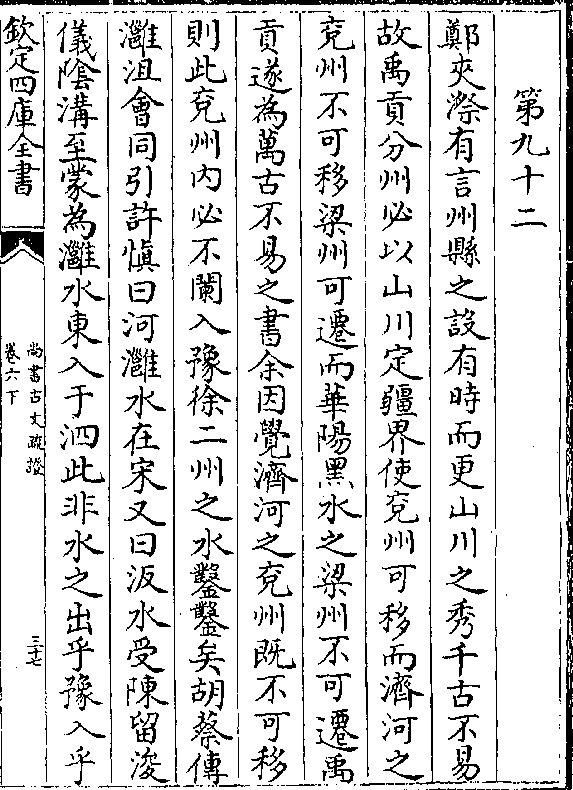 第九十二
鄭夾漈有言州縣之設有時而更山川之秀千古不易
故禹貢分州必以山川定疆界使兗州可移而濟河之
兗州不可移梁州可遷而華陽黑水之梁州不可遷禹
貢遂為萬古不易之書余因覺濟河之兗州既不可移
則此兗州内必不闌入豫徐二州之水鑿鑿矣胡蔡傳
灉沮會同引許慎曰河灉水在宋又曰汳水受陳留浚
儀陰溝至蒙為灉水東入于泗此非水之出乎豫入乎
欽定四庫全書
尚書古文疏證
卷六下
三十七